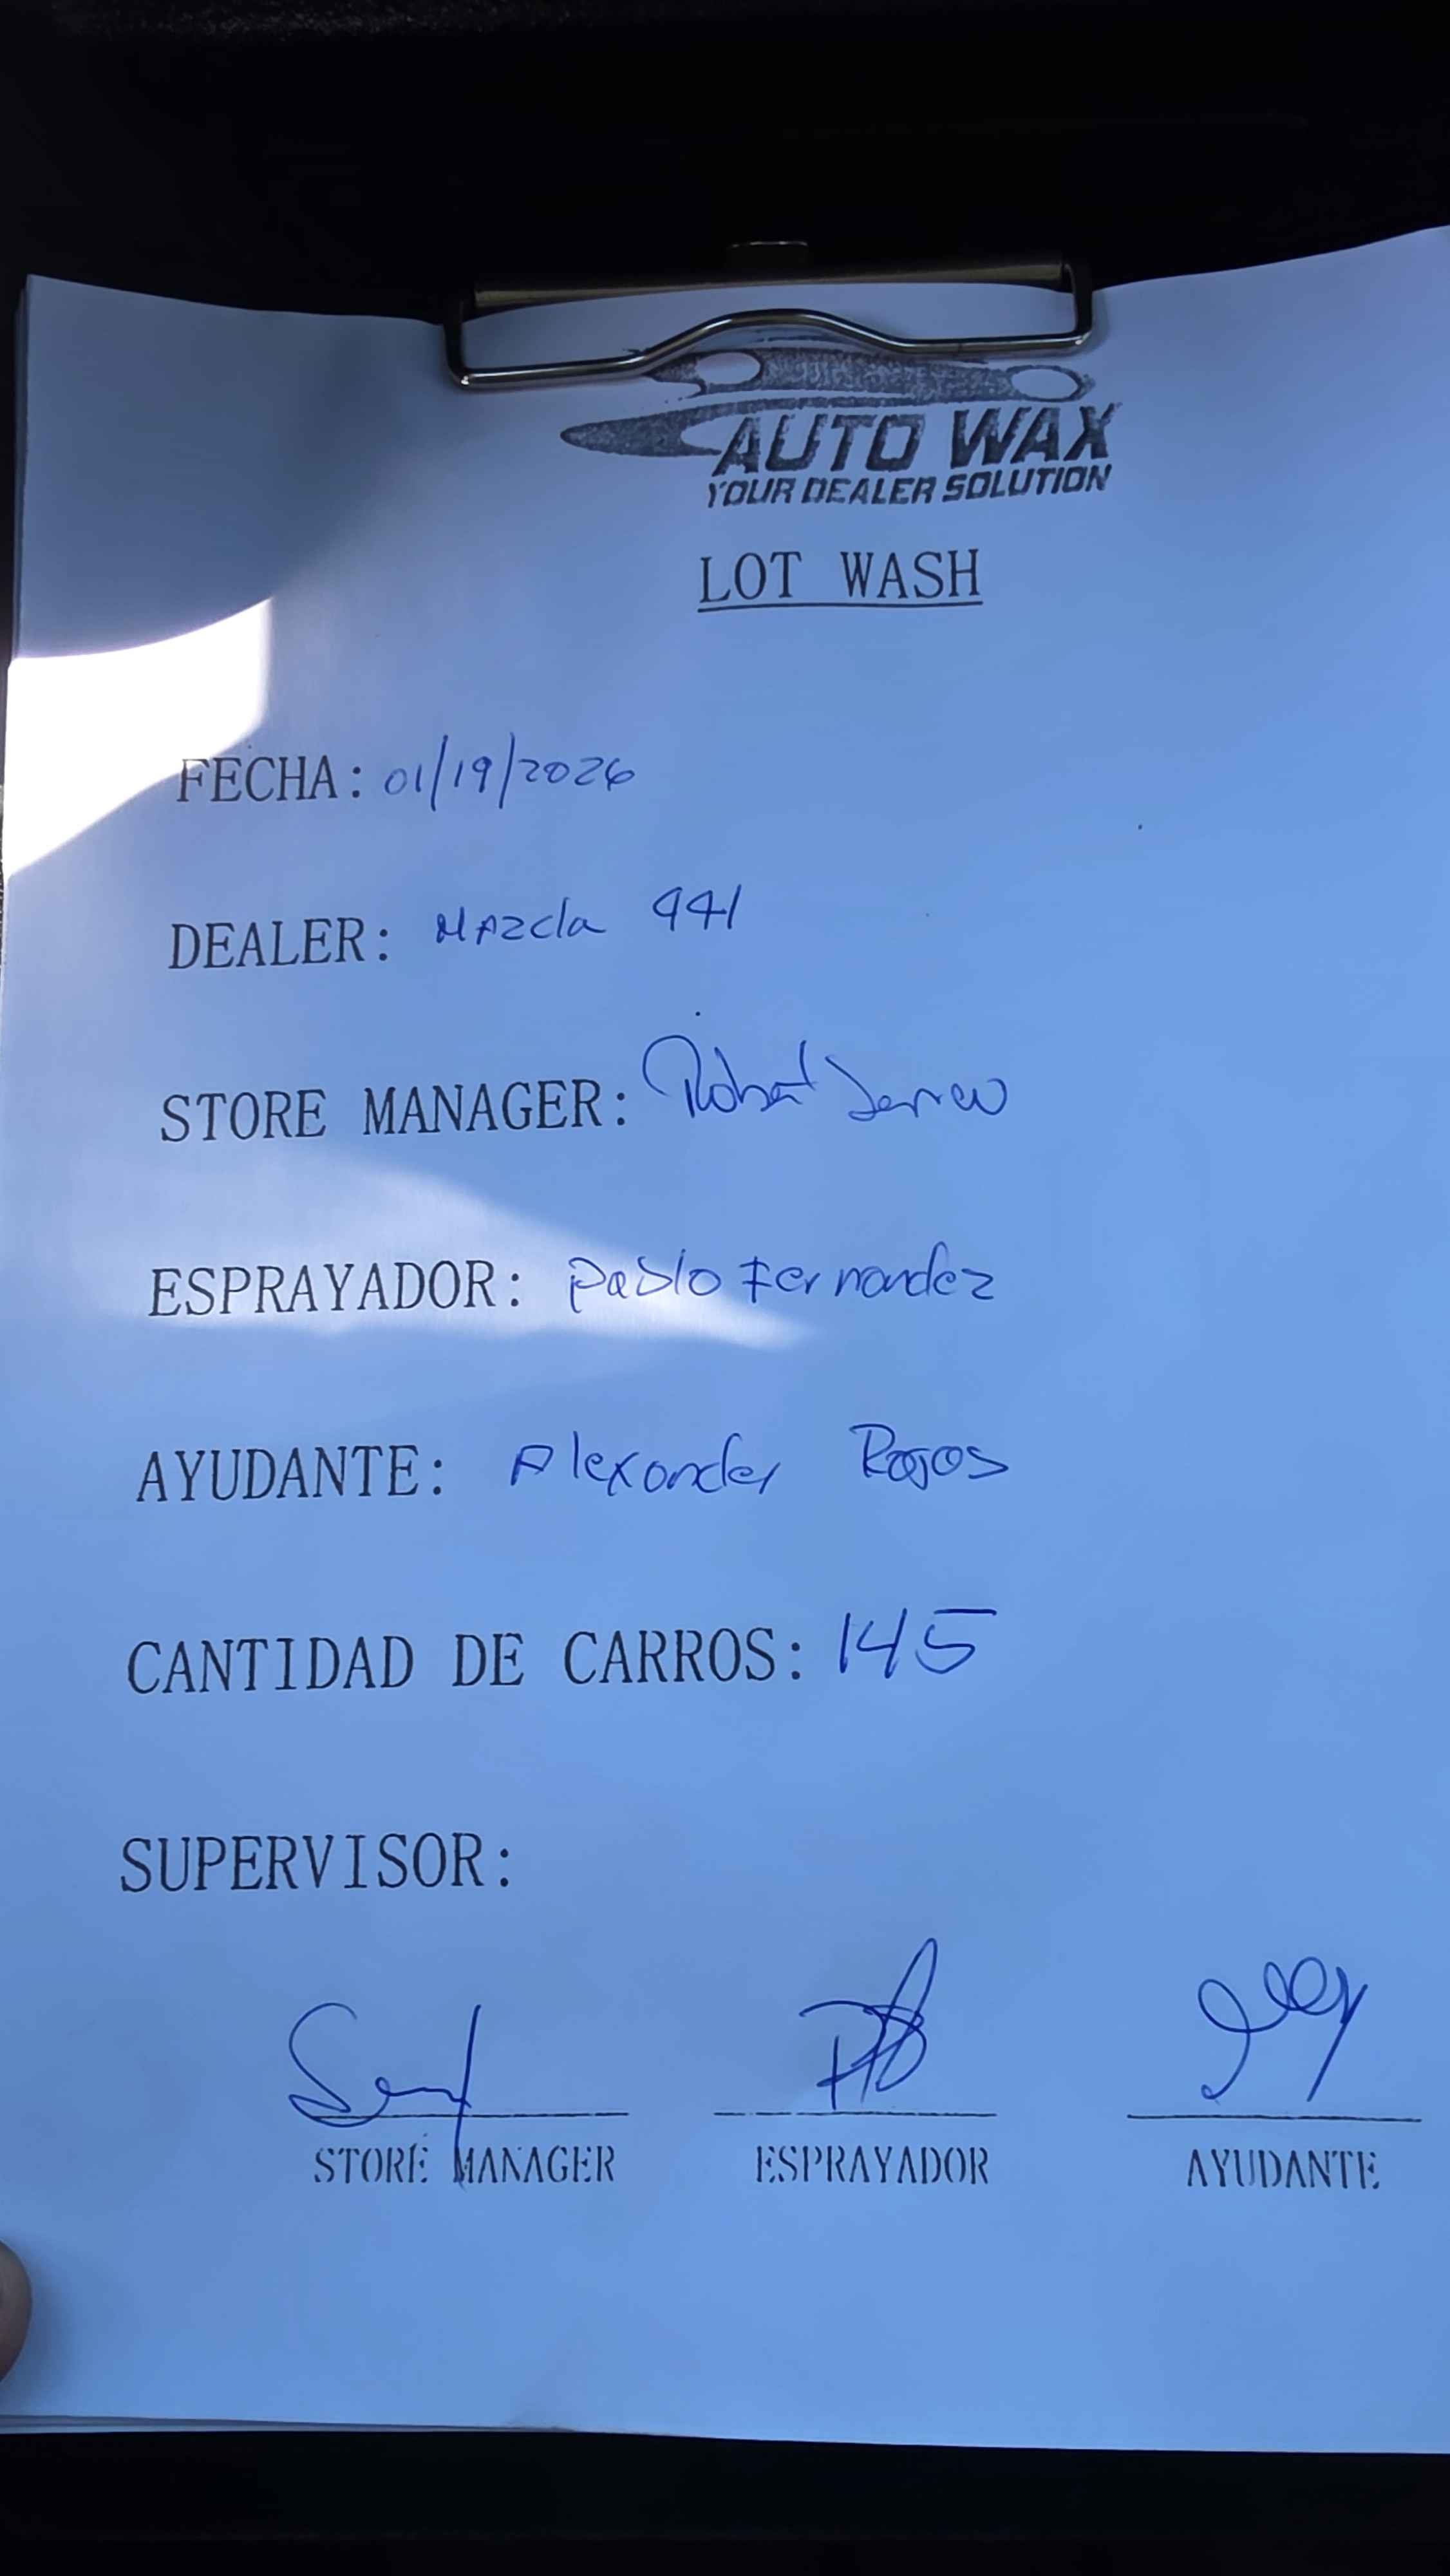 AUTO WAX
YOUR DEALER SOLUTION
LOT WASH
FECHA: 01/19/2026
DEALER: Mazda 441
STORE MANAGER: Robert
ESPRAYADOR: Pablo Fernandez
AYUDANTE: Alexander Rojas
CANTIDAD DE CARROS: 145
SUPERVISOR:
STORE MANAGER ESPRAYADOR AYUDANTE